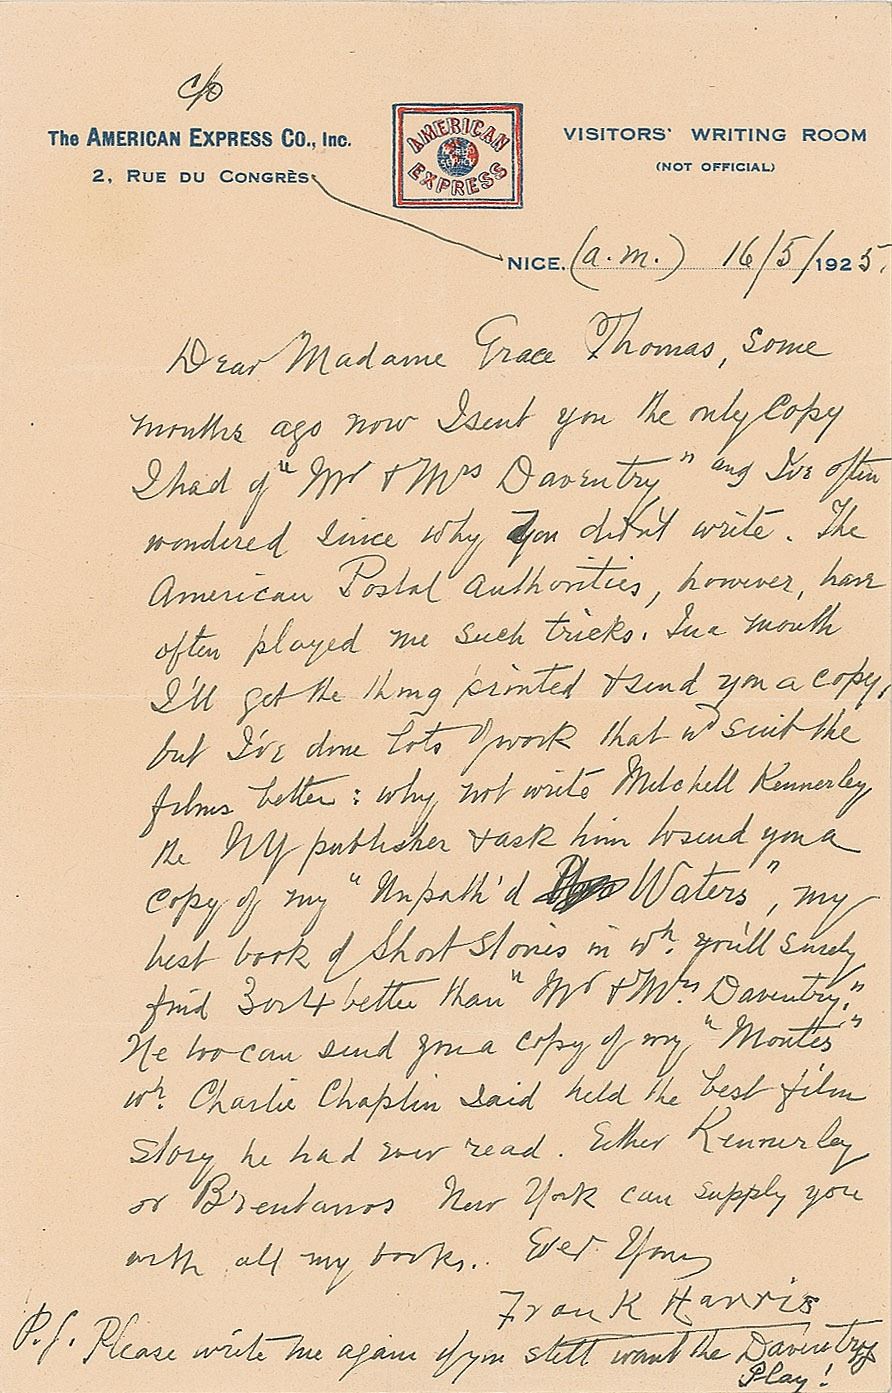 c/o
The AMERICAN EXPRESS CO., Inc.
2, RUE DU CONGRÈS
AMERICAN
WORLD
SERVICE
EXPRESS
VISITORS' WRITING ROOM
(NOT OFFICIAL)
NICE, (a.m.) 16/5/1925.
Dear Madame Grace Thomas, some
months ago now I sent you the only Copy
I had of "Mr & Mrs Daventry" and I've often
wondered since why you didn't write. The
American Postal Authorities, however, have
often played me such tricks. In a month
I'll get the thing printed & send you a copy,
but I've done lots of work that wd suit the
films better: why not write Mitchell Kennerley
the NY publisher & ask him to send you a
copy of my "Unpath'd Waters", my
best book of Short Stories in wh. you'll surely
find 3 or 4 better than "Mr & Mrs. Daventry."
He too can send you a copy of my "Montes"
wh. Charlie Chaplin said held the best film
story he had ever read. Either Kennerley
or Brentanos New York can supply you
with all my books.. Ever Yours
Frank Harris
P.S. Please write me again if you still want the Daventry
Play!